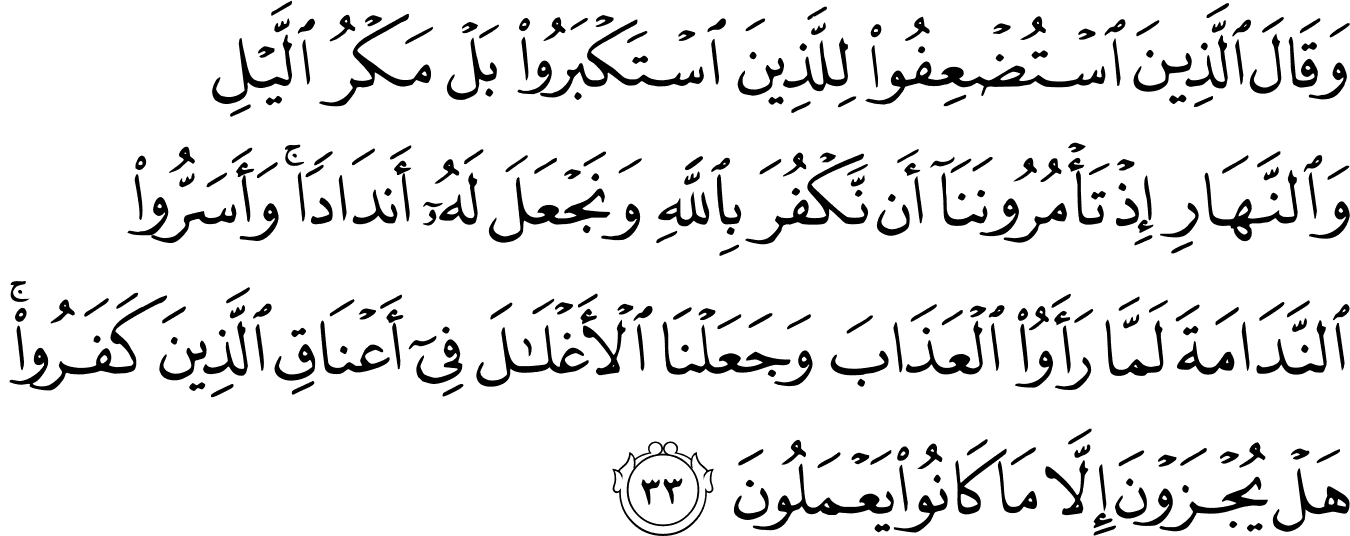 وَقَالَ ٱلَّذِينَ ٱسۡتُضۡعِفُواْ لِلَّذِينَ ٱسۡتَكۡبَرُواْ بَلۡ مَكۡرُ ٱلَّيۡلِ
وَٱلنَّهَارِ إِذۡ تَأۡمُرُونَنَآ أَن نَّكۡفُرَ بِٱللَّهِ وَنَجۡعَلَ لَهُۥٓ أَندَادٗاۚ وَأَسَرُّواْ
ٱلنَّدَامَةَ لَمَّا رَأَوُاْ ٱلۡعَذَابَ وَجَعَلۡنَا ٱلۡأَغۡلَٰلَ فِيٓ أَعۡنَاقِ ٱلَّذِينَ كَفَرُواْۚ
هَلۡ يُجۡزَوۡنَ إِلَّا مَا كَانُواْ يَعۡمَلُونَ ٣٣